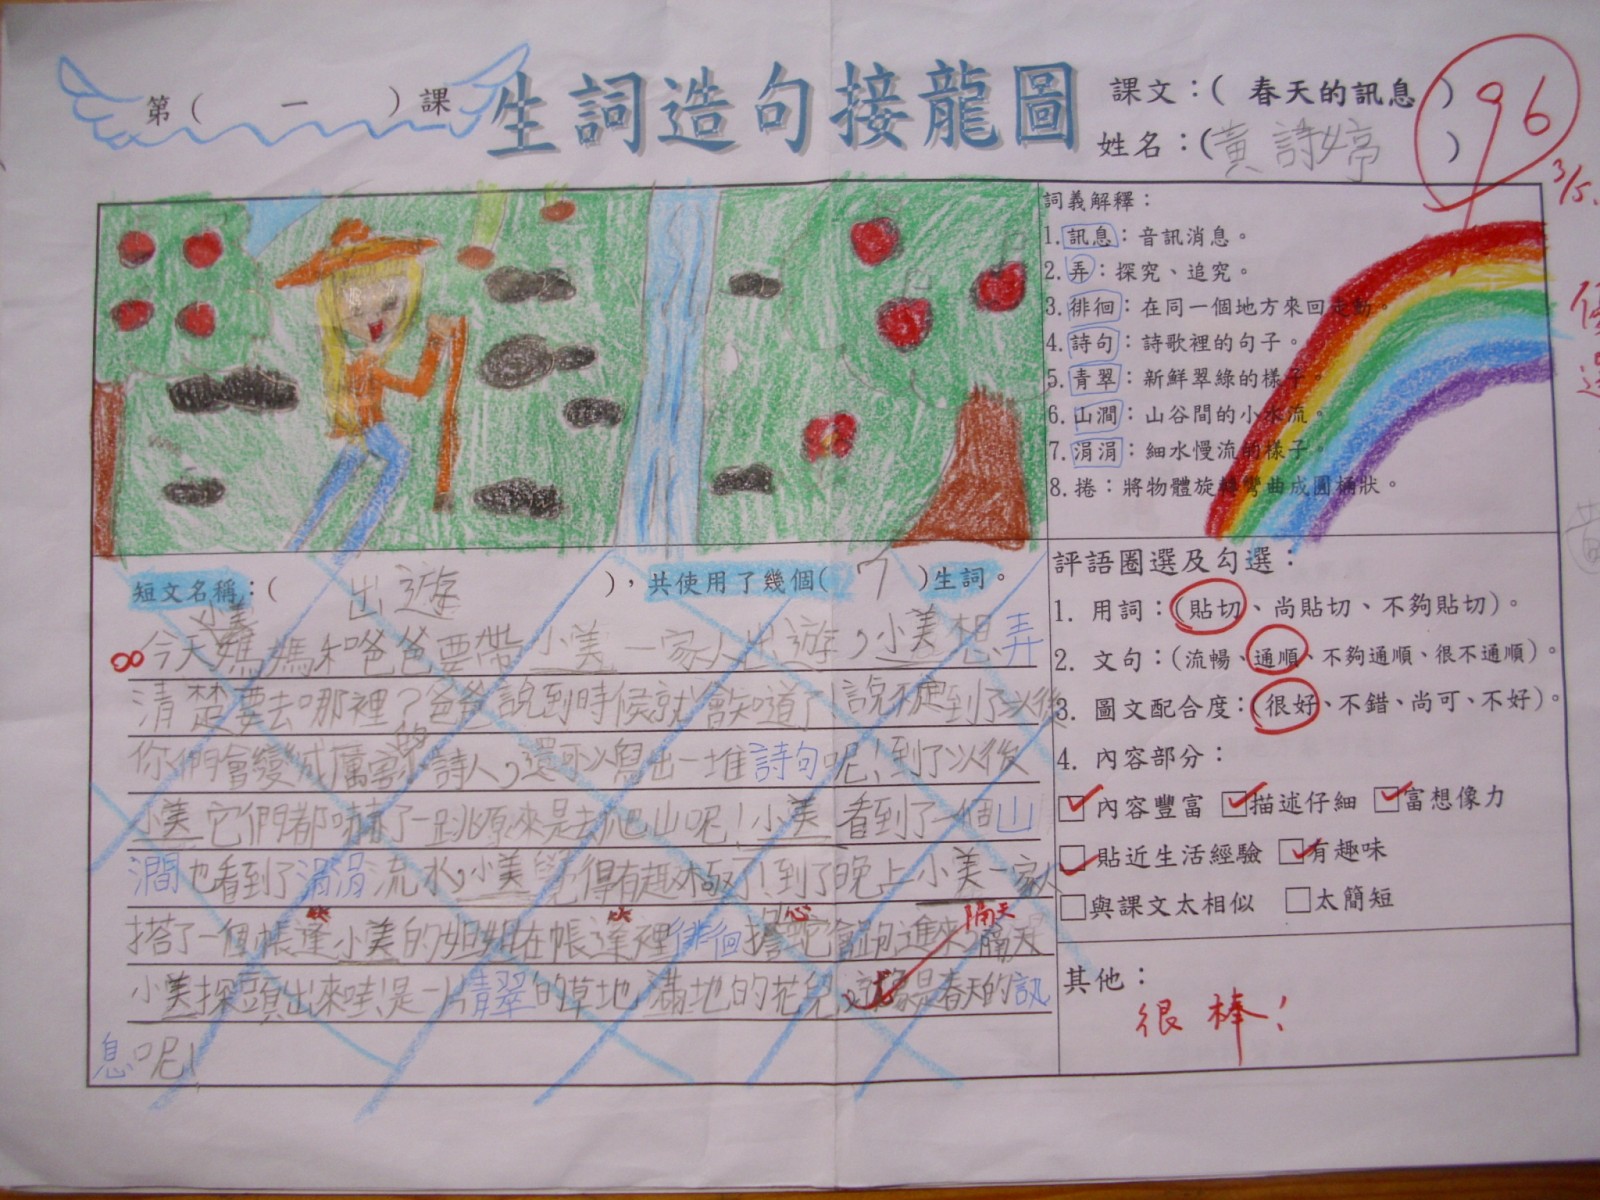 第( 一 )課
生詞造句接龍圖
課文：( 春天的訊息 )
姓名：(黃詩婷 )
96
3/5.
詞義解釋：
1.訊息：音訊消息。
2.弄：探究、追究。
3.徘徊：在同一個地方來回走動。
4.詩句：詩歌裡的句子。
5.青翠：新鮮翠綠的樣子。
6.山澗：山谷間的小水流。
7.涓涓：細水慢流的樣子。
8.捲：將物體旋轉彎曲成圓桶狀。
短文名稱：( 出遊 )，共使用了幾個( 7 )生詞。
小美
今天媽媽和爸爸要帶小美一家人出遊，小美想弄
清楚要去哪裡？爸爸說到時候就會知道了！說不定到了以後
你們會變成厲害的詩人，還可以寫出一堆詩句呢！到了以後
小美它們都嚇了一跳原來是去爬山呢！小美看到了一個山
澗也看到了涓涓流水，小美覺得有趣極了！到了晚上小美一家人
搭了一個帳蓬小美的姐姐在帳蓬裡徘徊擔心蛇會跑進來，隔天
隔天
小美探頭出來哇！是一片青翠的草地，滿地的花兒，就像是春天的訊
息呢！
評語圈選及勾選：
1. 用詞：(貼切、尚貼切、不夠貼切)。
2. 文句：(流暢、通順、不夠通順、很不通順)。
3. 圖文配合度：(很好、不錯、尚可、不好)。
4. 內容部分：
內容豐富 描述仔細 富想像力
貼近生活經驗 有趣味
與課文太相似 太簡短
其他：
很棒！